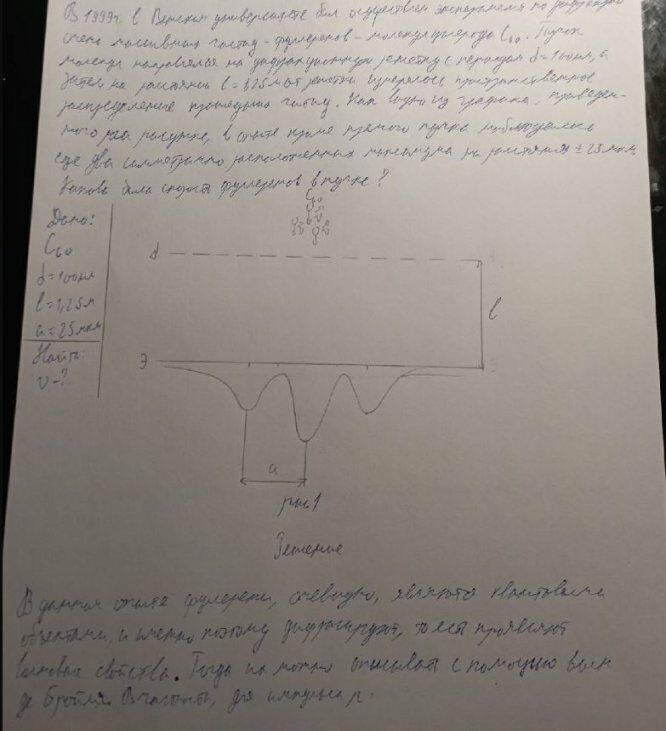 В 1999г. в Венском университете был осуществлен эксперимент по дифракции
очень массивных частиц - фулеренов - молекул углерода C60. Пучок
молекул направлялся на дифракционную решетку с периодом d = 100нм, а
затем, на расстоянии l = 1,25м от решетки измерялось пространственное
распределение прошедших частиц. Как видно из графика, приведен-
ного на рисунке, в опыте кроме прямого пучка наблюдалось
еще два симметрично расположенных максимума на расстоянии ± 25 мкм.
Какова была скорость фулеренов в пучке?
C60
Дано:
C60
d = 100нм
l = 1,25м
a = 25мкм
Найти:
v - ?
d
l
Э
a
рис. 1
Решение
В данном опыте фулерены, очевидно, являются квантовыми
объектами, и именно поэтому дифрагируют, то есть проявляют
волновые свойства. Тогда их можно описывать с помощью волн
де Бройля. В частности, для импульса p: